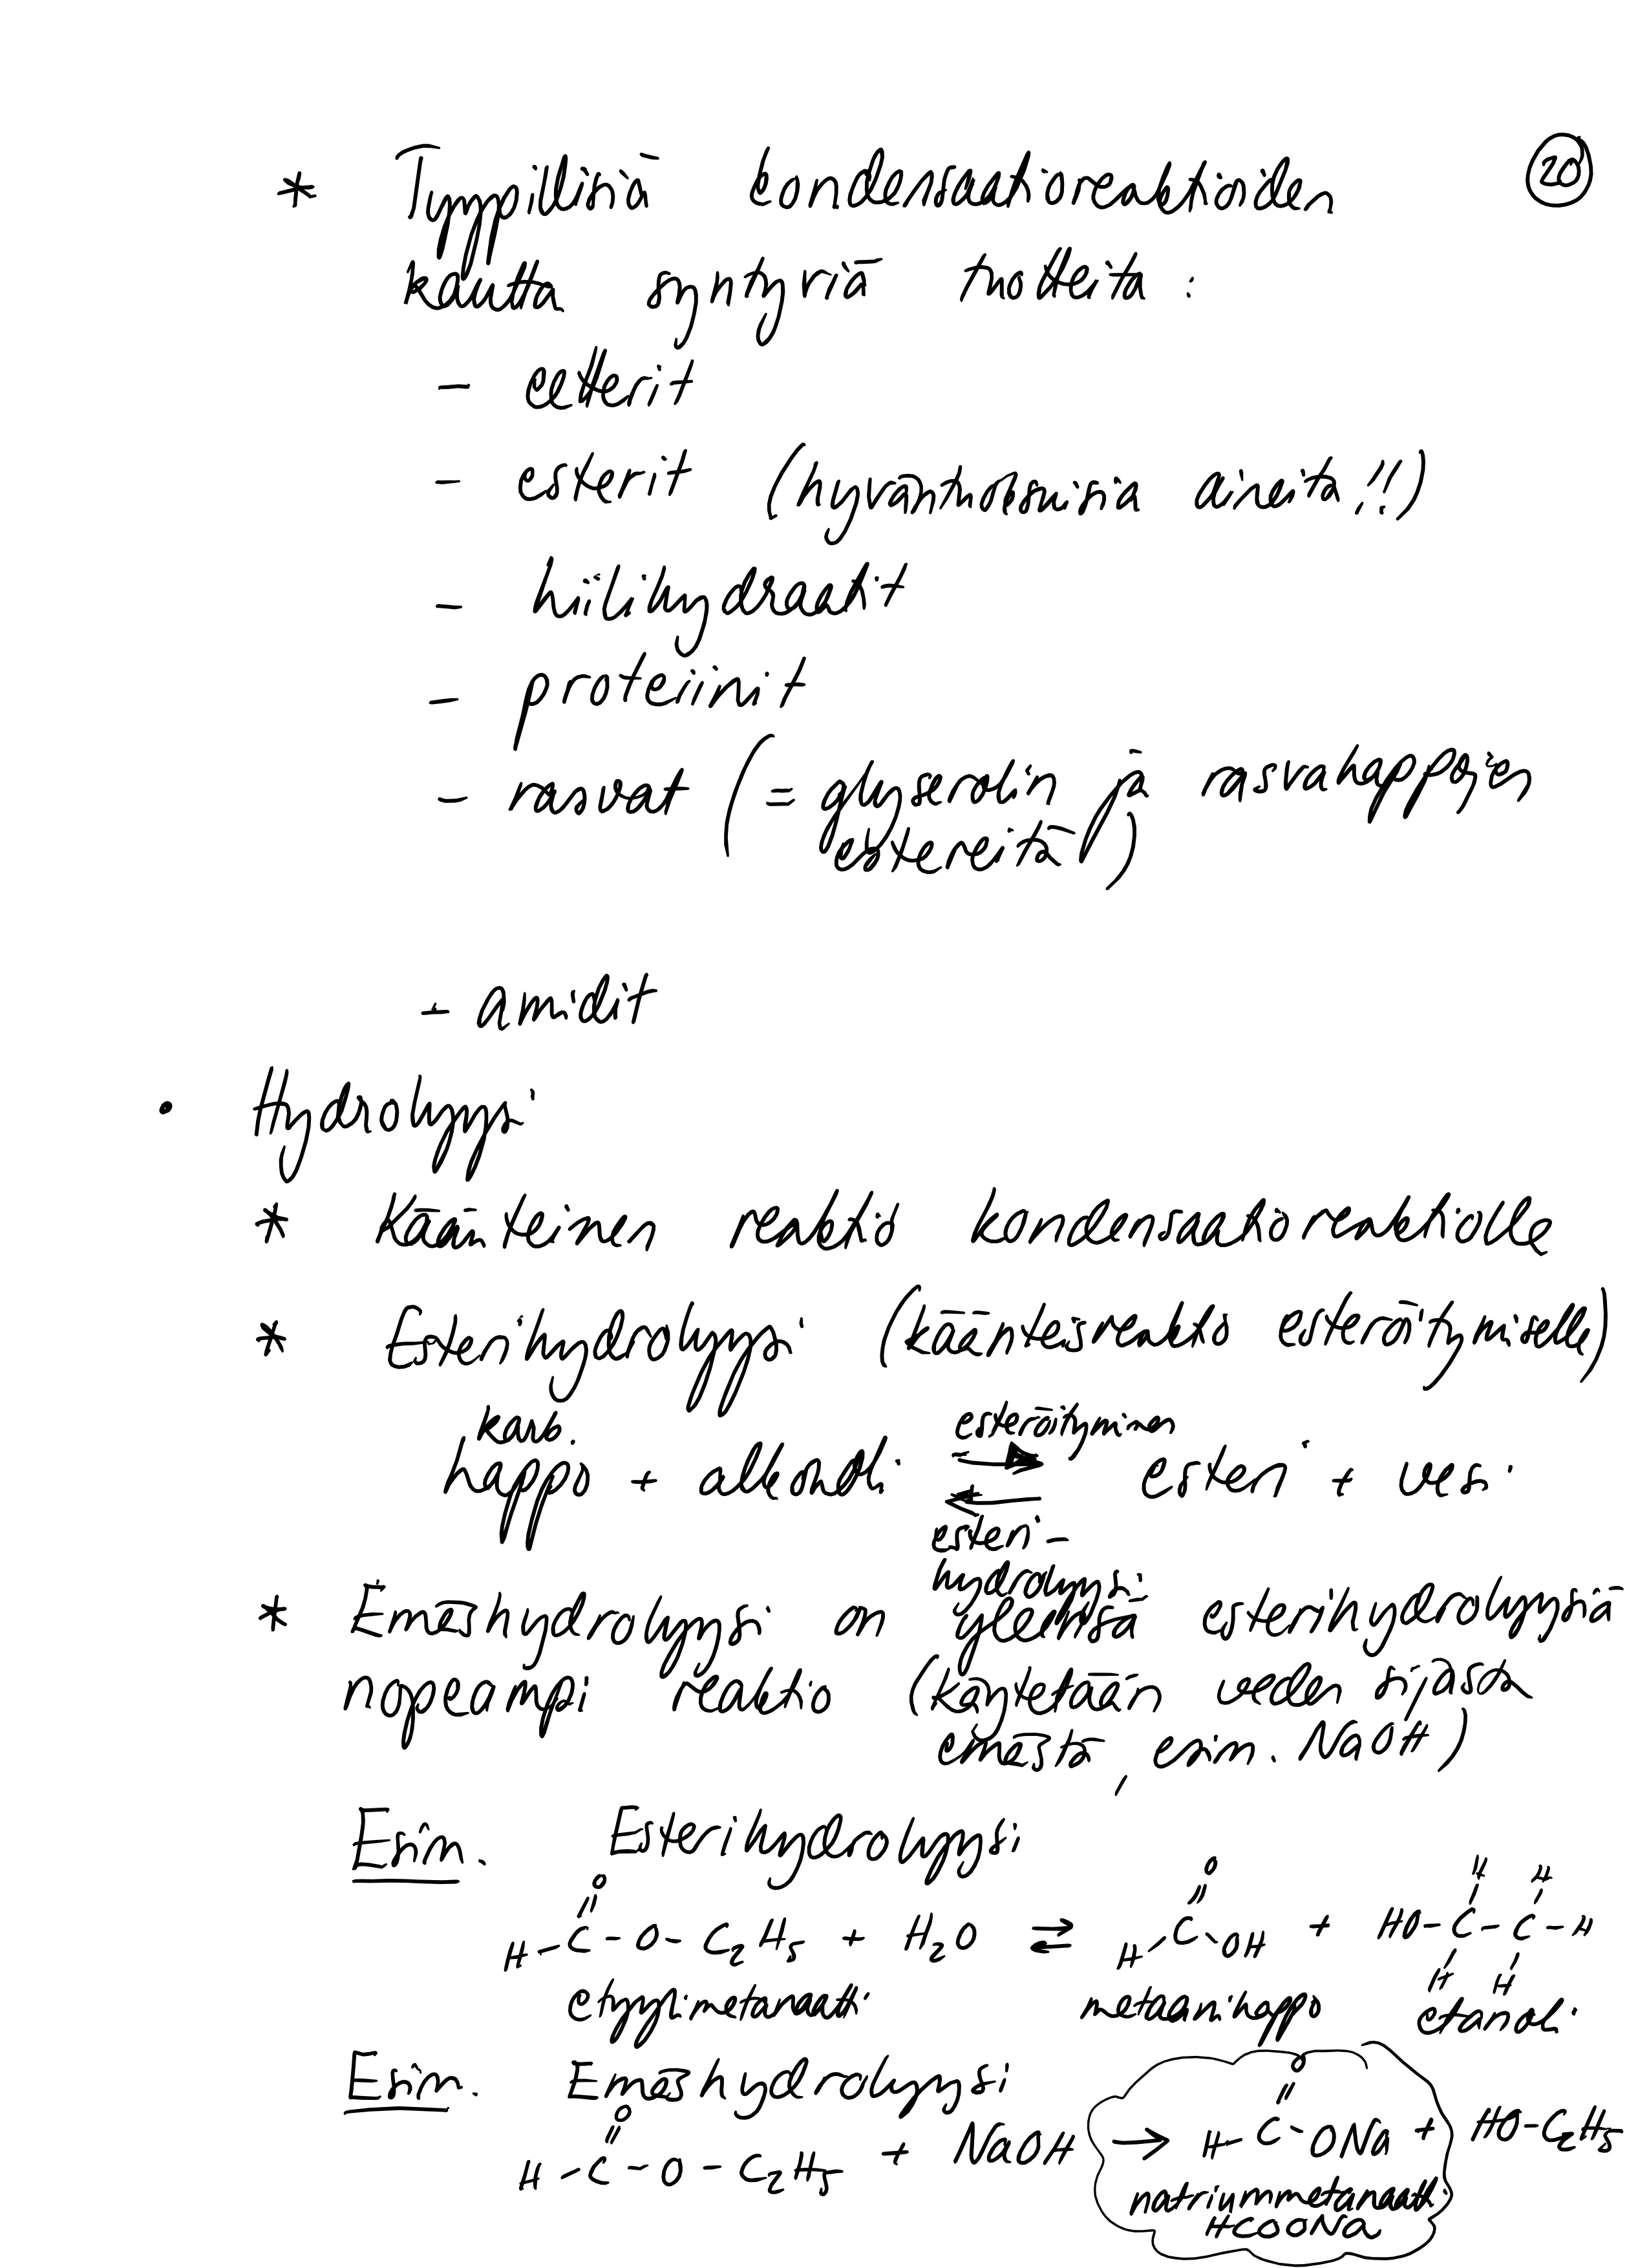 * Tyypillisiä kondensaatioreaktioiden
20
kautta syntyviä tuotteita :
- eetterit
- esterit (hyväntuoksuisia aineita!!)
- hiilihydraatit
- proteiinit
- rasvat (= glyserolin ja rasvahappojen
estereitä)
- amidit
• Hydrolyysi
* Käänteinen reaktio kondensaatioreaktiolle
* Esterihydrolyysi (käänteisreaktio esteröitymiselle)
karb.
happo + alkoholi ⇌ esteri + vesi
esteröityminen
esteri-
hydrolyysi
* Emäshydrolyysi on yleensä esterihydrolyysiä
nopeampi reaktio (käytetään veden sijasta
emästä, esim. NaOH)
Esim. Esterihydrolyysi
O O H H
H-C-O-C₂H₅ + H₂O ⇌ H-C-OH + HO-C-C-H
H H
etyylimetanaatti metaanihappo etanoli
Esim. Emäshydrolyysi
O O
H-C-O-C₂H₅ + NaOH → H-C-ONa + HO-C₂H₅
natriummetanaatti
HCOONa